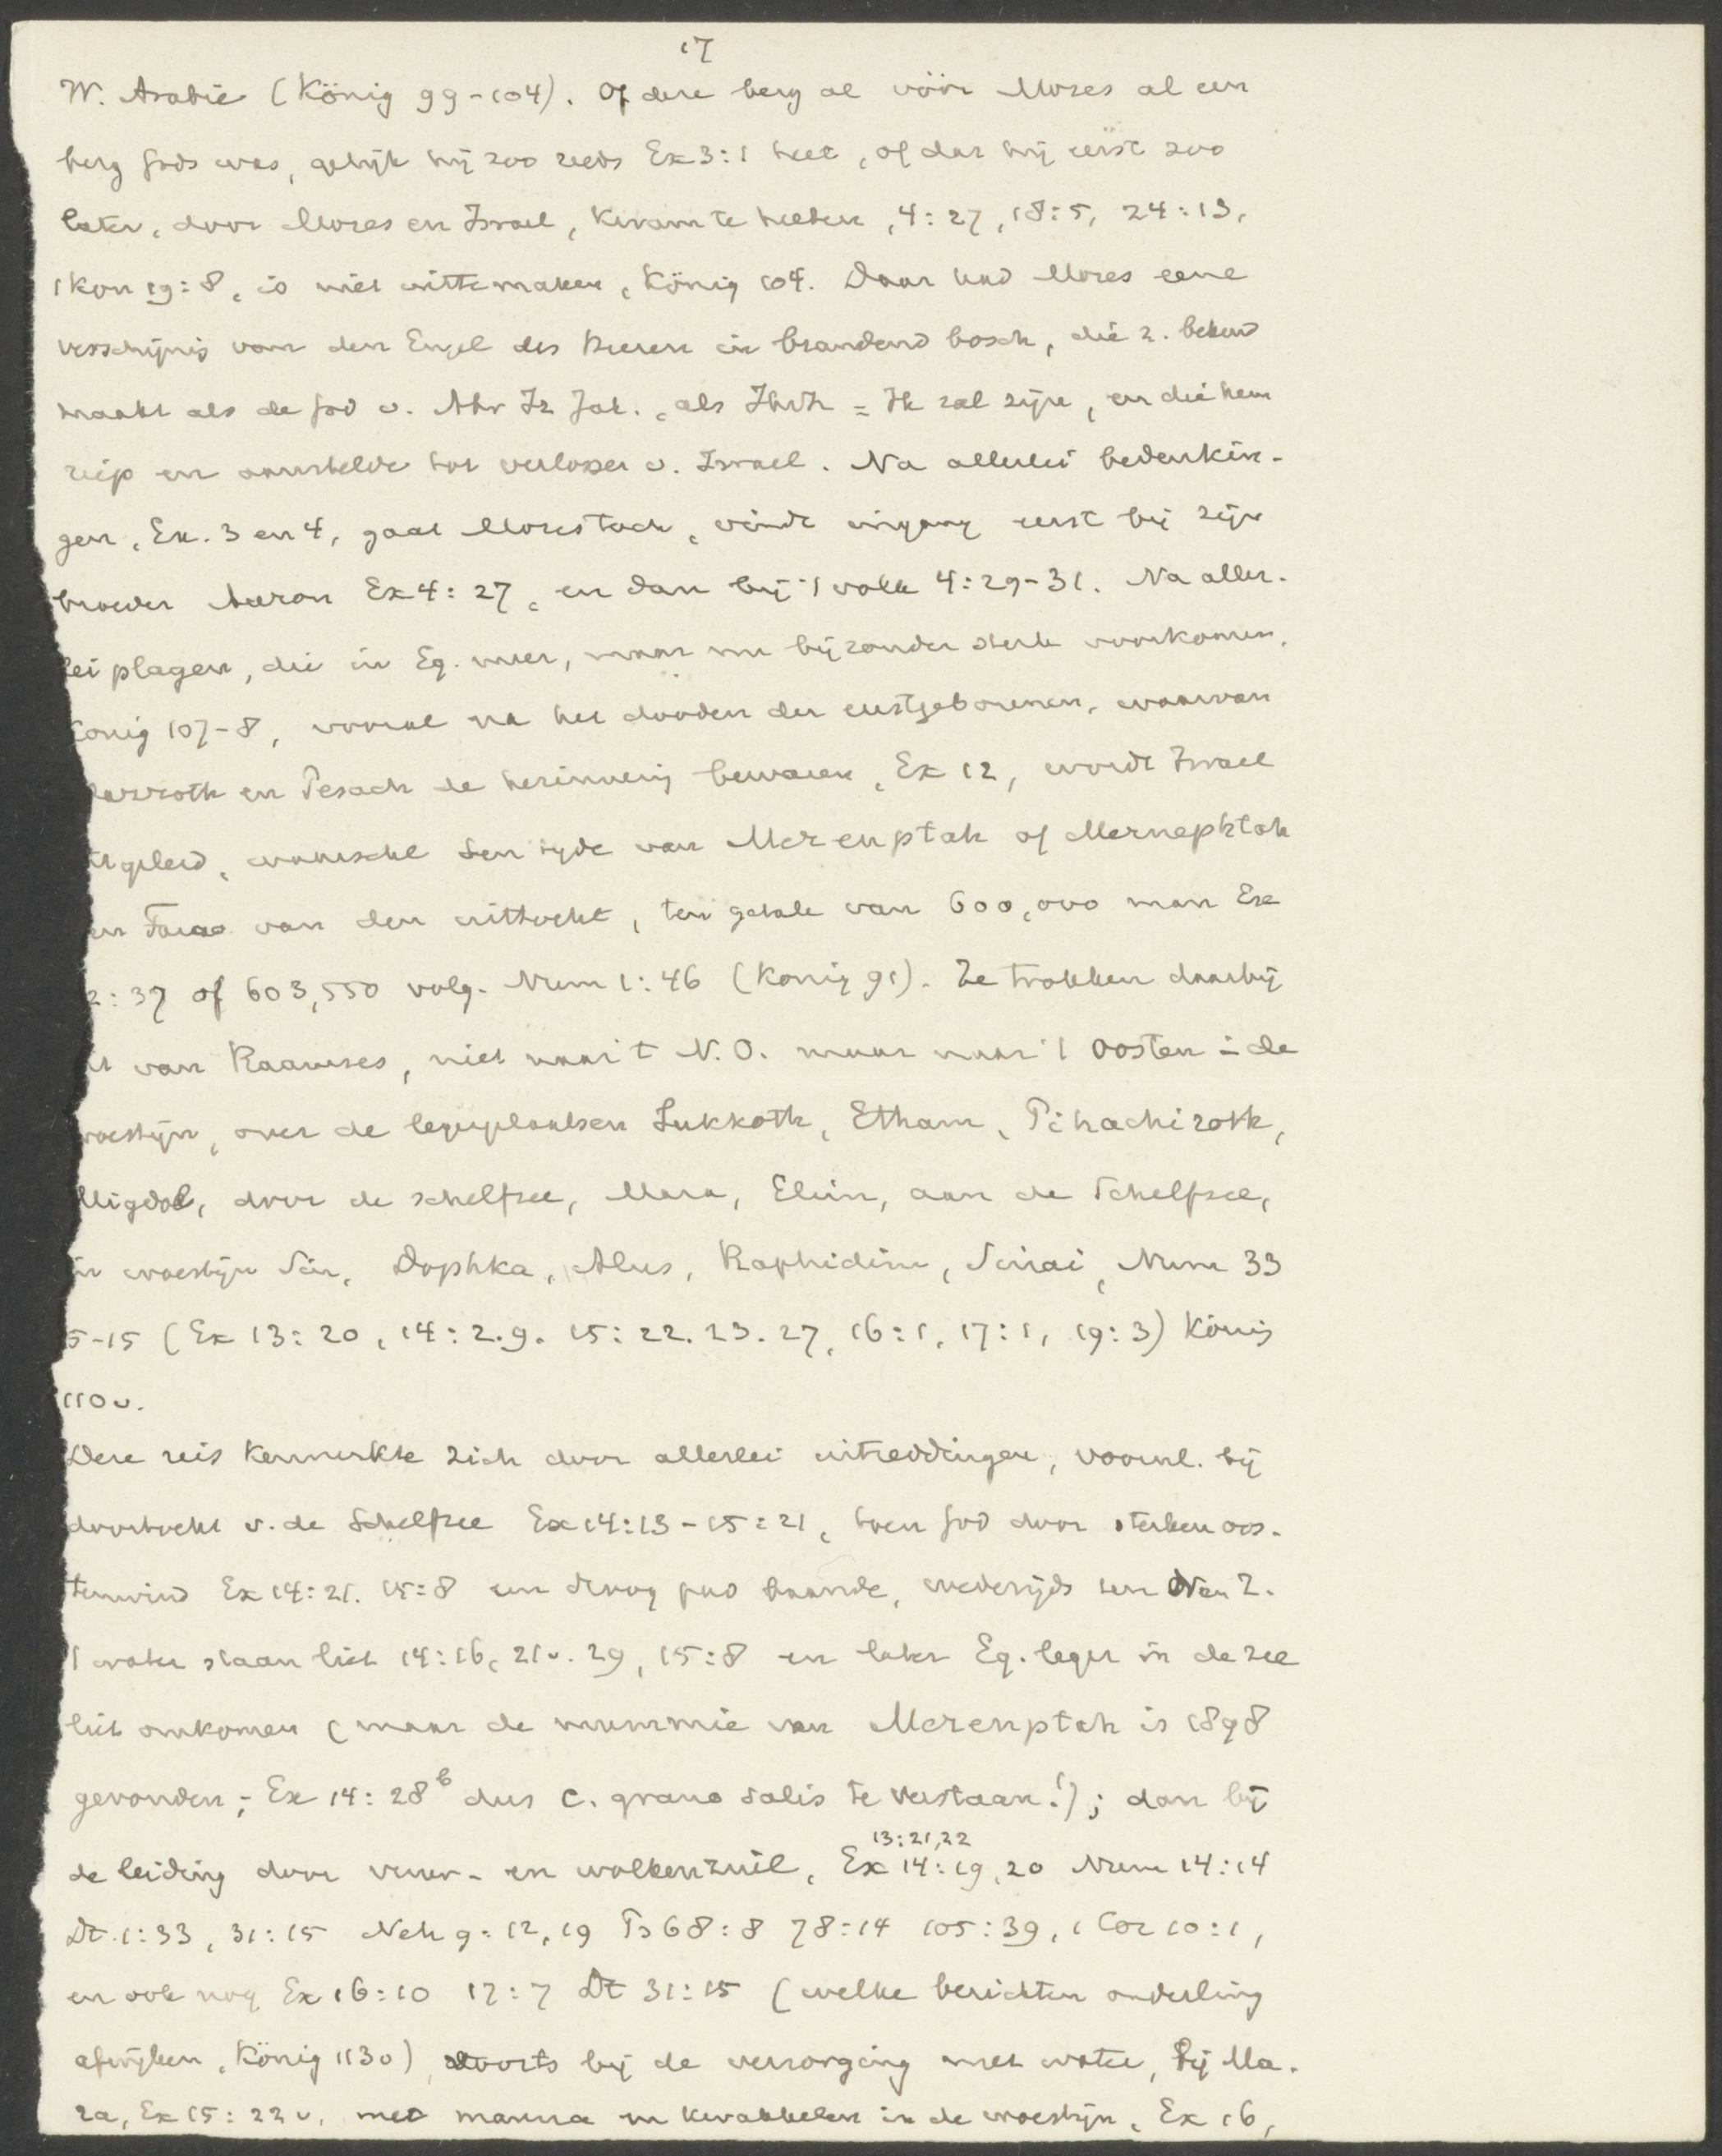 17
W. Arabie (König 99-104). Of deze berg al vóór Mozes al een
berg Gods was, gelijk hij zoo reeds Ex 3:1 heet, of dat hij eerst zoo
later, door Mozes en Israel, kwam te heeten, 4:27, 18:5, 24:13,
1 Kon 19:8, is niet uittemaken, König 104. Daar had Mozes eene
verschijnig van den Engel des Heeren in brandend bosch, die z. bekend
maakt als de God v. Abr Iz Jak., als Jhvh = Ik zal zijn, en die hem
riep en aanstelde tot verlosser v. Israel. Na allerlei bedenkin-
gen, Ex. 3 en 4, gaat Mozes toch, vindt ingang eerst bij zijn
broeder Aäron Ex 4:27, en dan bij 't volk 4:29-31. Na aller-
lei plagen, die in Eg. meer, maar nu bijzonder sterk voorkomen,
König 107-8, vooral na het dooden der eerstgeborenen, waarvan
azzoth en Pesach de herinnerig bewaren, Ex 12, wordt Israel
itgeleid, waarschl ten tijde van Merenptah of Mernephtah
en Farao van den uittocht, ten getale van 600,000 man Ex
2:37 of 603,550 volg. Num 1:46 (König 91). Ze trokken daarbij
it van Raamses, niet naar 't N.O. maar naar 't Oosten in de
woestijn, over de legerplaatsen Sukkoth, Etham, Pihachiroth,
Migdol, door de schelfzee, Mara, Elim, aan de Schelfzee,
in woestijn Sin, Dophka, Alus, Raphidim, Sinai, Num 33
5-15 (Ex 13:20, 14:2.9. 15:22.23.27, 16:1, 17:1, 19:3) König
110 v.
Deze reis kenmerkte zich door allerlei uitreddingen, voornl. bij
doortocht v. de Schelfzee Ex 14:13-15:21, toen God door sterken oos-
tenwind Ex 14:21. 15:8 een droog pad baande, wederzijds ten N en Z.
't water staan liet 14:16, 21 v. 29, 15:8 en later Eg. leger in de zee
liet omkomen (maar de mummie van Merenptah is 1898
gevonden; Ex 14:28b dus c. grano salis te verstaan!); dan bij
13:21,22
de leiding door vuur- en wolkenzuil, Ex 14:19,20 Num 14:14
Dt. 1:33, 31:15 Neh 9:12,19 Ps 68:8 78:14 105:39, 1 Cor 10:1,
en ook nog Ex 16:10 17:7 Dt 31:15 (welke berichten onderling
afwijken, König 1130), voorts bij de verzorging met water, bij Ma-
ra, Ex 15:22 v. met manna en kwakkelen in de woestijn, Ex 16,